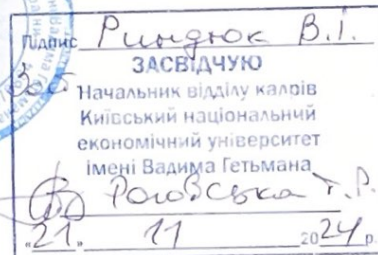 Підпис Риндюк В.І.
ЗАСВІДЧУЮ
Начальник відділу кадрів
Київський національний
економічний університет
імені Вадима Гетьмана
Роговська Т.Р.
"21" 11 2024 р.